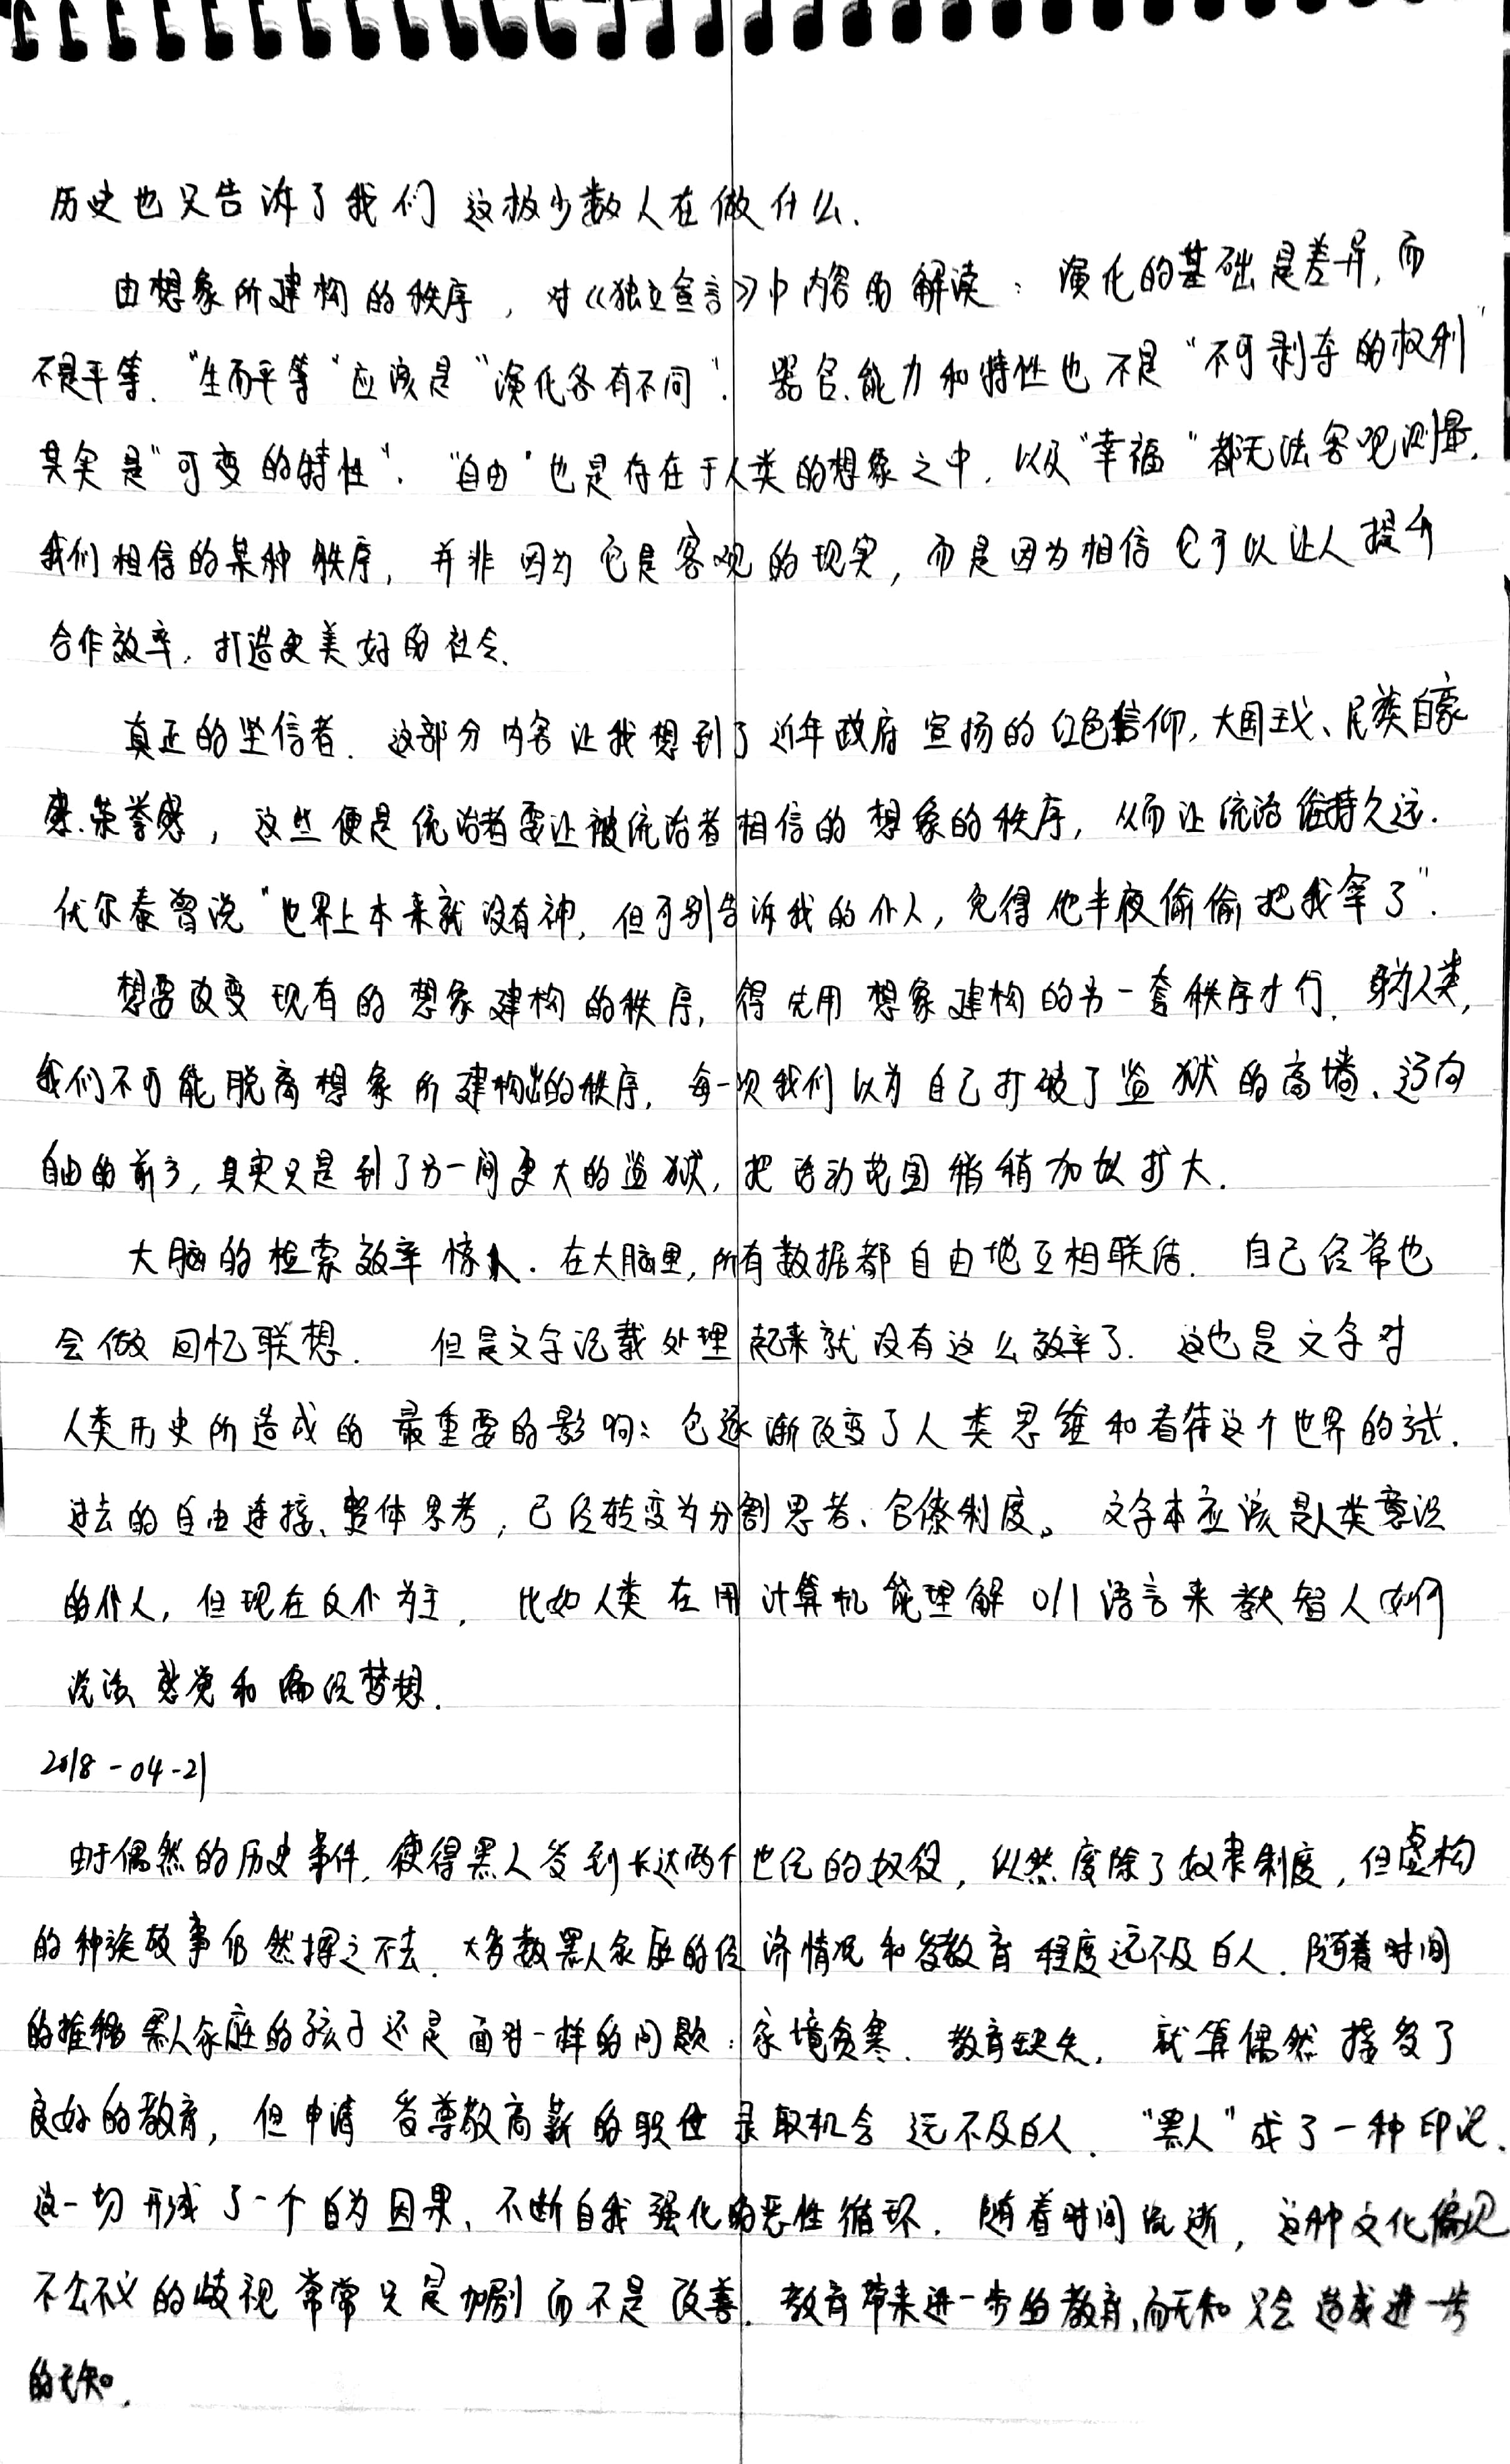 历史也只告诉了我们 这极少数人在做什么.
由想象所建构的秩序，对《独立宣言》中内容的解读：演化的基础是差异,而
不是平等."生而平等"应该是"演化各有不同". 器官.能力和特性也不是"不可剥夺的权利"
其实是"可变的特性"."自由"也是存在于人类的想象之中.以及"幸福"都无法客观测量.
我们相信的某种秩序, 并非因为它是客观的现实,而是因为相信它可以让人提升
合作效率,打造更美好的社会.
真正的坚信者. 这部分内容让我想到了近年政府宣扬的红色信仰,大国主义、民族自豪
感.荣誉感，这些便是统治者要让被统治者相信的想象的秩序，从而让统治维持久远.
伏尔泰曾说"世界上本来就没有神,但可别告诉我的仆人,免得他半夜偷偷把我宰了".
想要改变现有的想象建构的秩序,得先用想象建构的另一套秩序才行. 身为人类,
我们不可能脱离想象所建构出的秩序. 每一次我们以为自己打破了监狱的高墙、迈向
自由的前方,其实只是到了另一间更大的监狱,把活动范围稍稍加以扩大.
大脑的检索效率惊人.在大脑里,所有数据都自由地互相联结. 自己经常也
会做回忆联想. 但是文字记载处理起来就没有这么效率了. 这也是文字对
人类历史所造成的最重要的影响：它逐渐改变了人类思维和看待这个世界的方式.
过去的自由连接、整体思考,已经转变为分割思考、官僚制度。文字本应该是人类意识
的仆人,但现在反仆为主. 比如人类在用计算机能理解0/1语言来教智人如何
说话 感觉和编织梦想.
2018-04-21
由于偶然的历史事件,使得黑人受到长达两个世纪的奴役,纵然废除了奴隶制度,但虚构
的种族故事仍然挥之不去. 大多数黑人家庭的经济情况和受教育程度远不及白人. 随着时间
的推移 黑人家庭的孩子还是面对一样的问题：家境贫寒. 教育缺失. 就算偶然接受了
良好的教育,但申请 受尊敬高薪的职位 录取机会远不及白人. "黑人"成了一种印记.
这一切形成了一个自为因果、不断自我强化的恶性循环. 随着时间流逝，这种文化偏见
不公不义的歧视常常只是加剧而不是改善. 教育带来进一步的教育,而无知只会造成进一步
的无知.